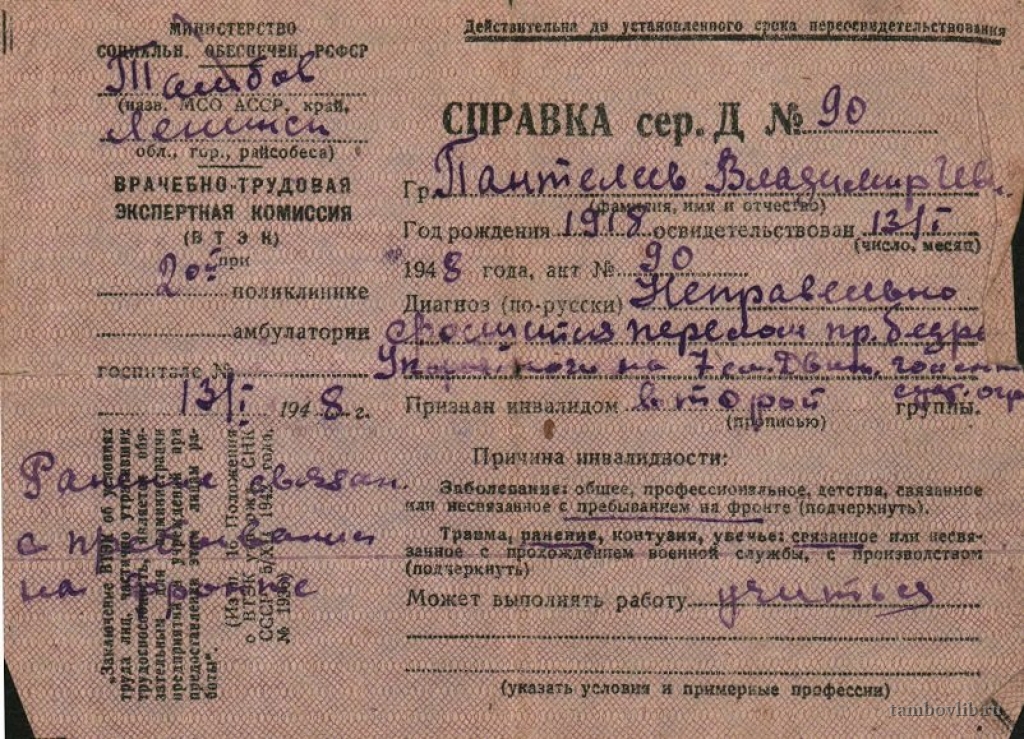 МИНИСТЕРСТВО
СОЦИАЛЬН. ОБЕСПЕЧЕН. РСФСР
Тамбов
(назв. МСО АССР, край,
Ленинск
обл., гор., райсобеса)
ВРАЧЕБНО-ТРУДОВАЯ
ЭКСПЕРТНАЯ КОМИССИЯ
(ВТЭК)
при
2ой поликлинике
амбулатории
госпитале №
13/I 1948 г.
„Заключение ВТЭК об условиях
труда лиц, частично утративших
трудоспособность, является обя-
зательным для администрации
предприятий и учреждений при
предоставлении этим лицам ра-
боты“.
(Из п. 16 Положения
о ВТЭК, утвержд. СНК
№ 1936)
Ранение связан
с пребыванием
на фронте
Действительна до установленного срока переосвидетельствования
СПРАВКА сер. Д № 90
Гр. Пантелеев Владимир
(фамилия, имя и отчество)
Год рождения 1918 освидетельствован 13/I
(число, месяц)
1948 года, акт № 90
Диагноз (по-русски) Неправельно
перелом пр. бедра
на 7 см. Движ.
Признан инвалидом второй группы.
(прописью)
Причина инвалидности:
Заболевание: общее, профессиональное, детства, связанное
или несвязанное с пребыванием на фронте (подчеркнуть).
Травма, ранение, контузия, увечье: связанное или несвя-
занное с прохождением военной службы, с производством
(подчеркнуть)
Может выполнять работу учиться
(указать условия и примерные профессии)
tambovlib.ru